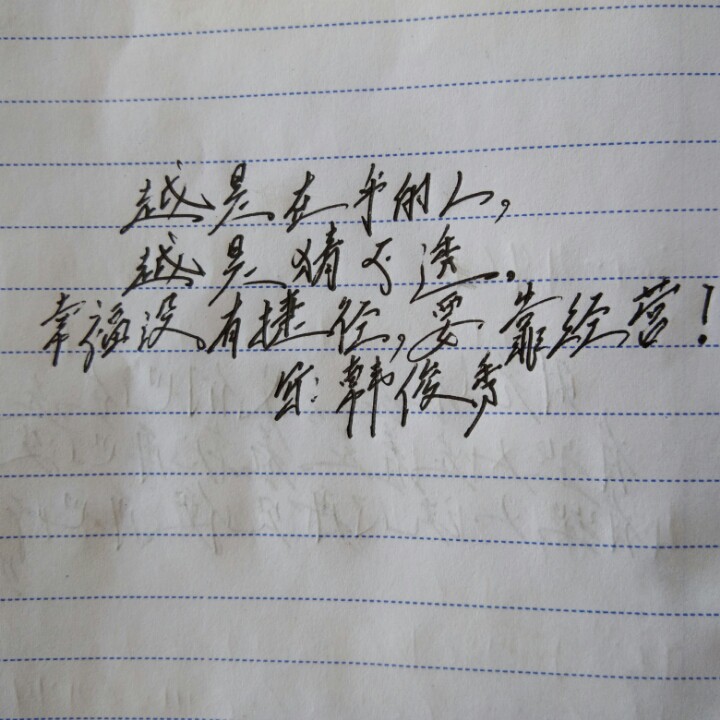 越是在乎的人,
越是猜不透。
幸福没有捷径,要靠经营!
写:韩俊秀